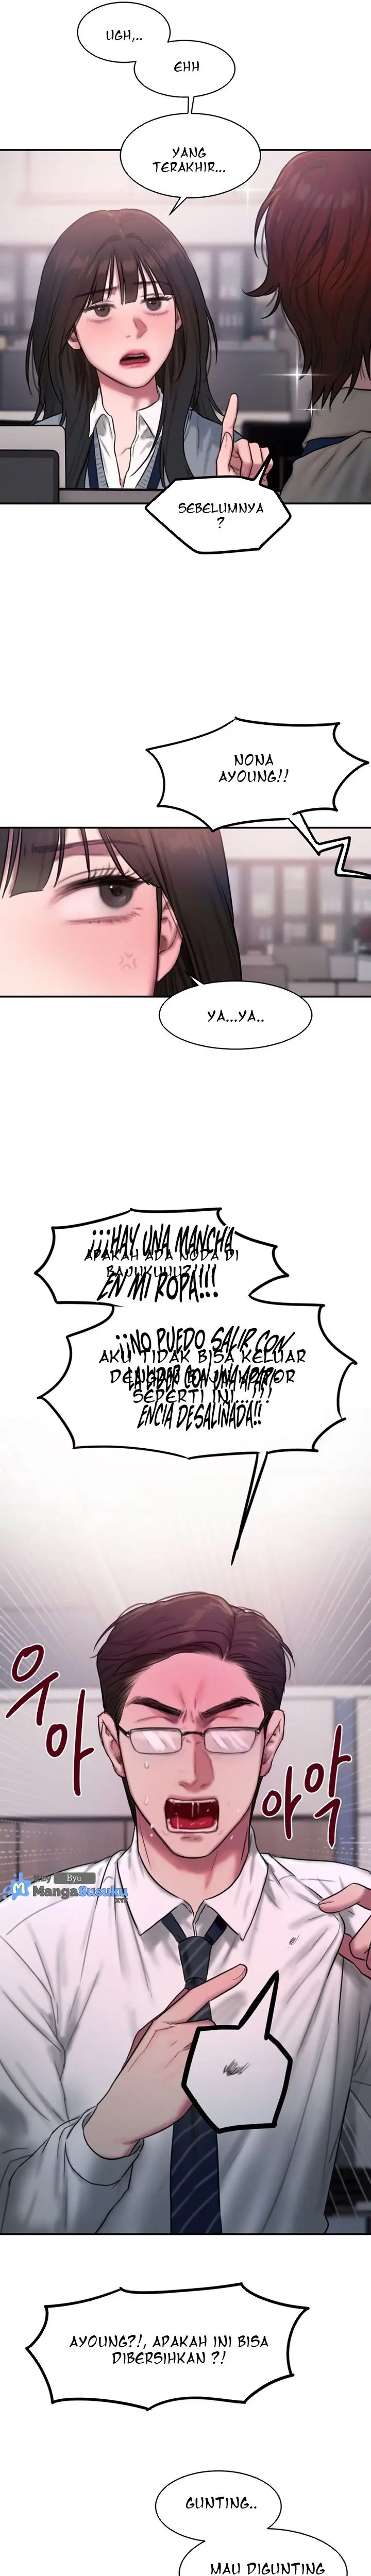 UGH,..
EHH
YANG
TERAKHIR...
SEBELUMNYA
?
NONA
AYOUNG!!
YA...YA..
¡¡¡HAY UNA MANCHA
APAKAH ADA NODA DI
BAJUKUUU?!!!!
EN MI ROPA!!!
¡¡NO PUEDO SALIR CON
AKU TIDAK BISA KELUAR
DENGAN
SEPERTI INI...!!!
ENCIA DESALINADA!!
우아
아악
By Byu
MangaSusuku
XYZ
AYOUNG?!, APAKAH INI BISA
DIBERSIHKAN ?!
GUNTING..
MAU DIGUNTING